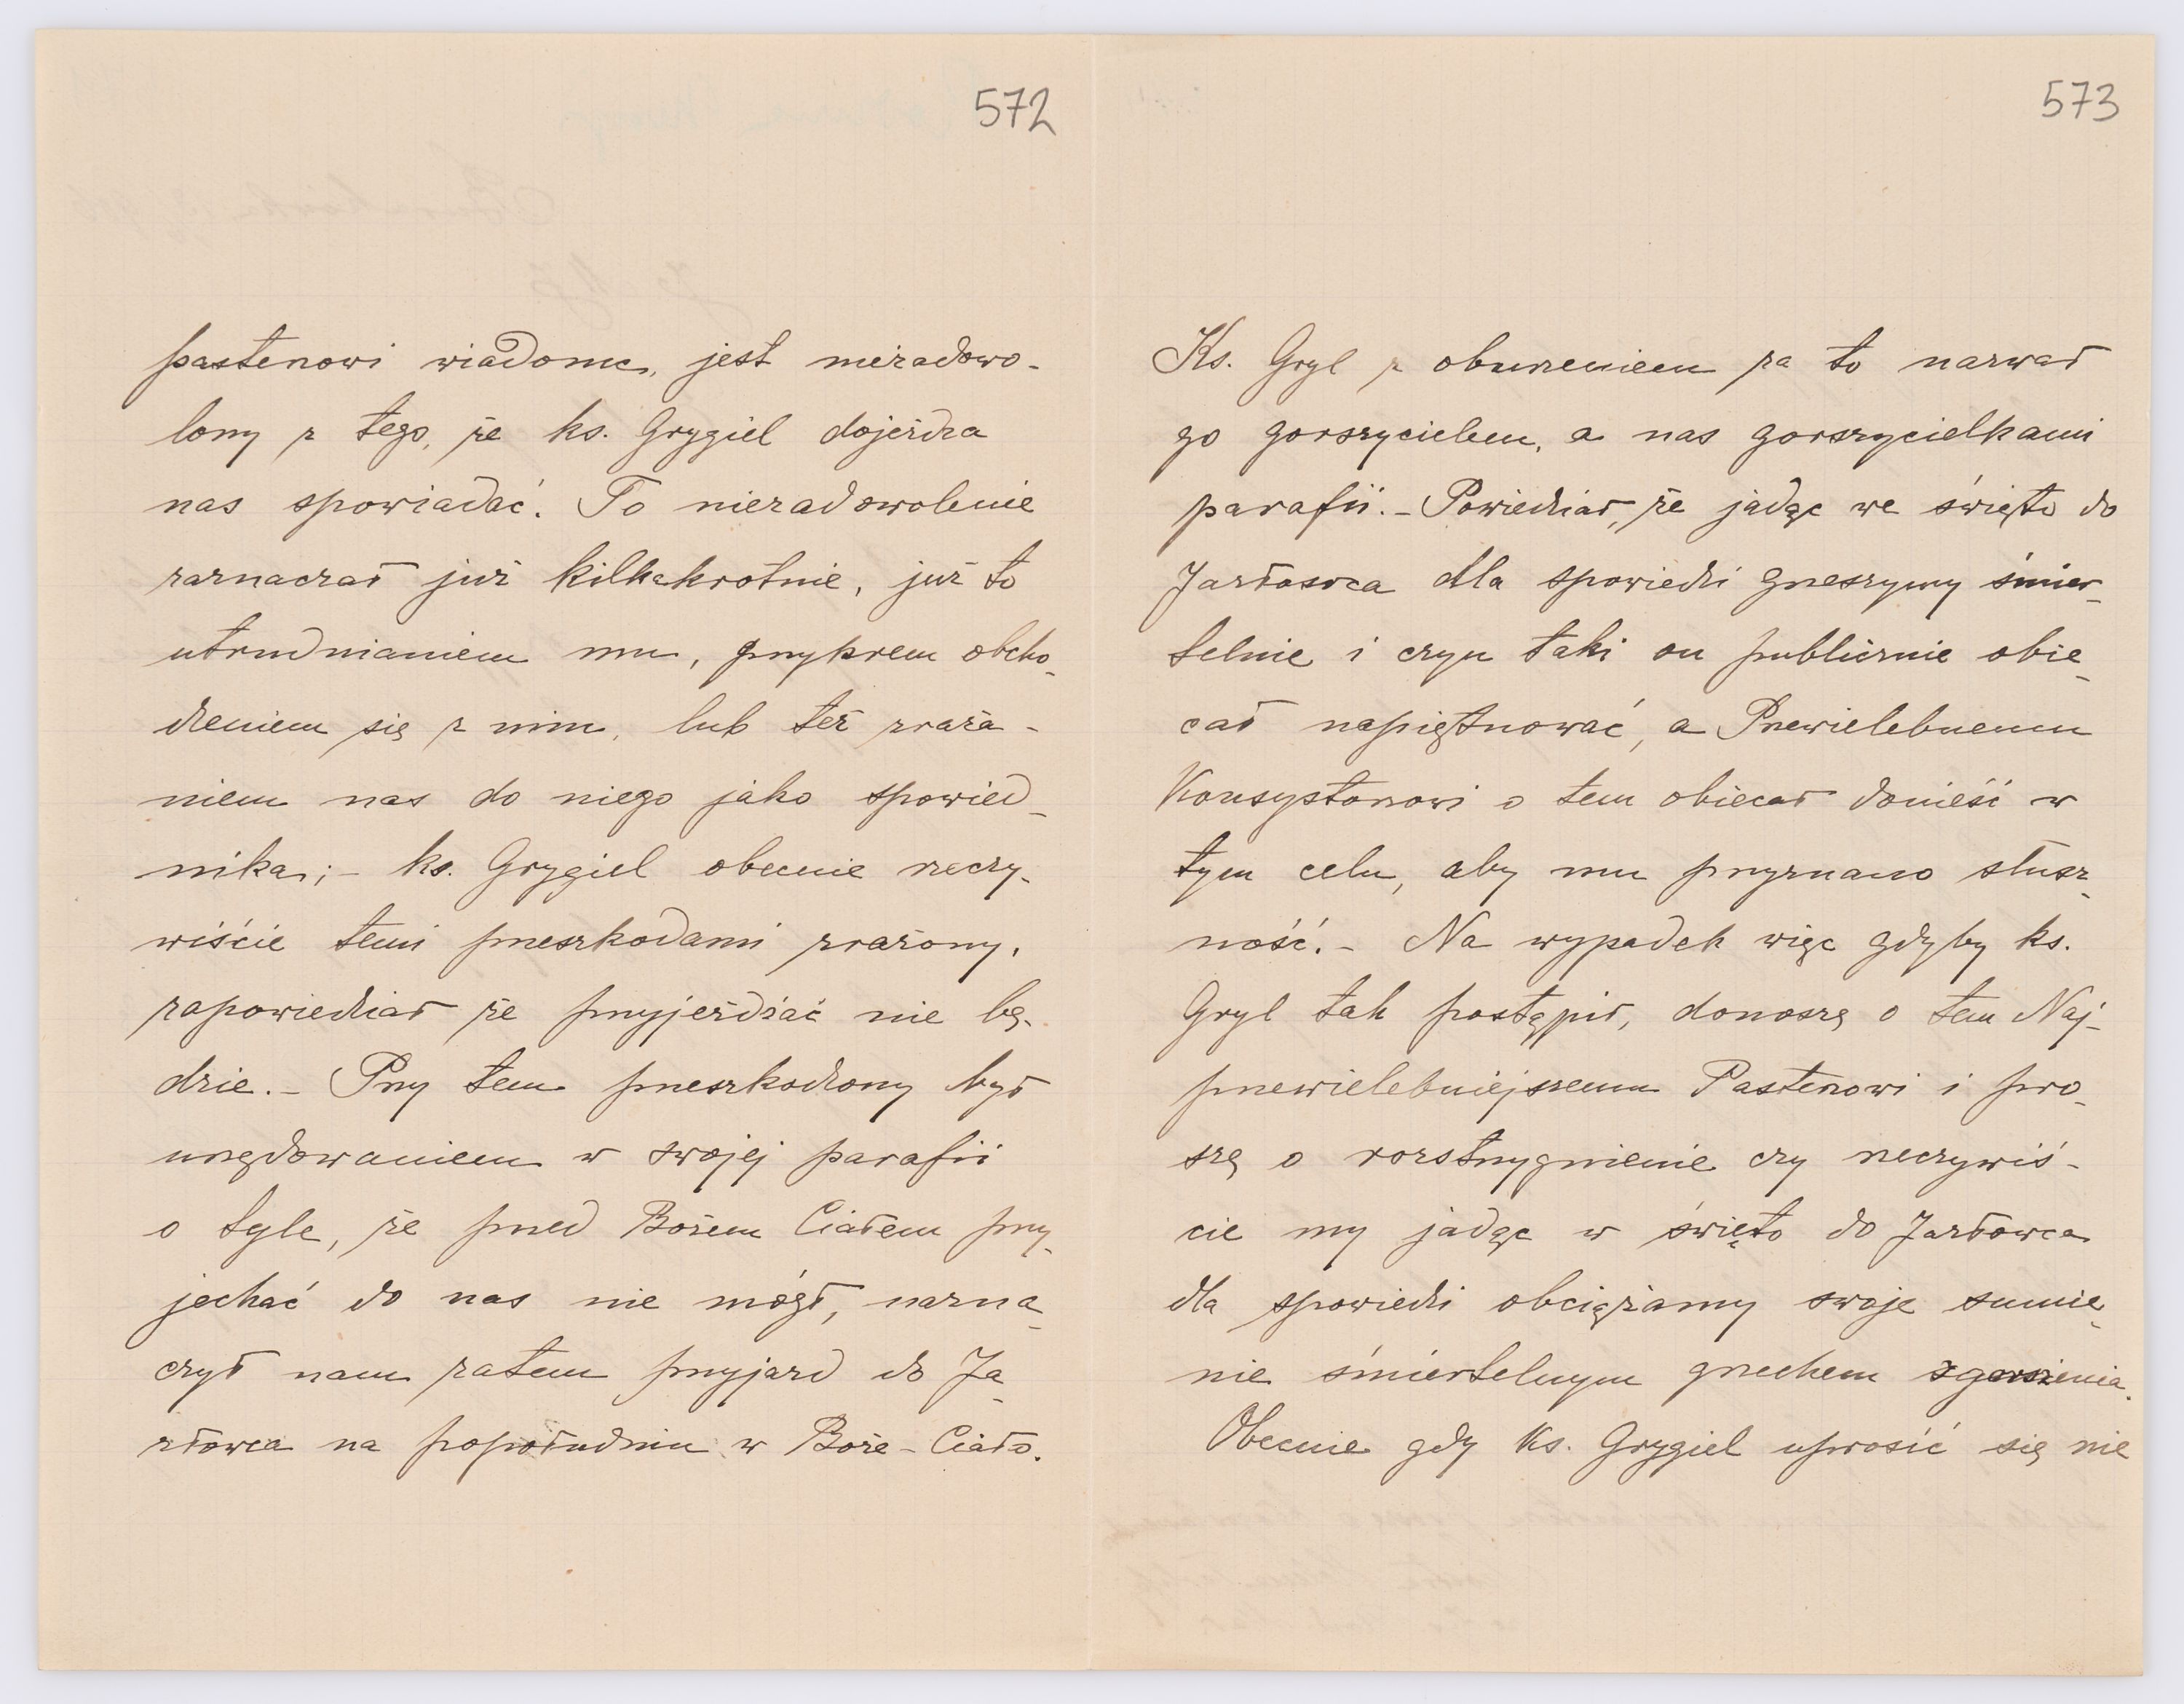 572
pasterzowi wiadome, jest niezadowo-
lony z tego, że ks. Grygiel dojeżdża
nas spowiadać. To niezadowolenie
zaznaczał już kilkakrotnie, już to
utrudnianiem mu, przykrem obcho-
dzeniem się z nim, lub też zraża-
niem nas do niego jako spowied-
nika; - ks. Grygiel obecnie rzeczy-
wiście temi przeszkodami zrażony,
zapowiedział że przyjeżdżać nie bę-
dzie. - Przy tem przeszkodzony był
urzędowaniem w swojej parafii
o tyle, że przed Bożem Ciałem przy-
jechać do nas nie mógł, nazna-
czył nam zatem przyjazd do Ja-
złowca na popołudniu w Boże-Ciało.
573
Ks. Gryl z oburzeniem za to nazwał
go gorszycielem, a nas gorszycielkami
parafii. - Powiedział, że jadąc we święto do
Jazłowca dla spowiedzi grzeszymy śmier-
telnie i czyn taki on publicznie obie-
cał napiętnować, a Przewielebnemu
Konsystorzowi o tem obiecał donieść w
tym celu, aby mu przyznano słusz-
ność. - Na wypadek więc gdyby ks.
Gryl tak postąpił, donoszę o tem Naj-
przewielebniejszemu Pasterzowi i pro-
szę o rozstrzygnienie czy rzeczywiś-
cie my jadąc w święto do Jazłowca
dla spowiedzi obciążamy swoje sumie-
nie śmiertelnym grzechem zgorszenia.
Obecnie gdy Ks. Grygiel uprosić się nie